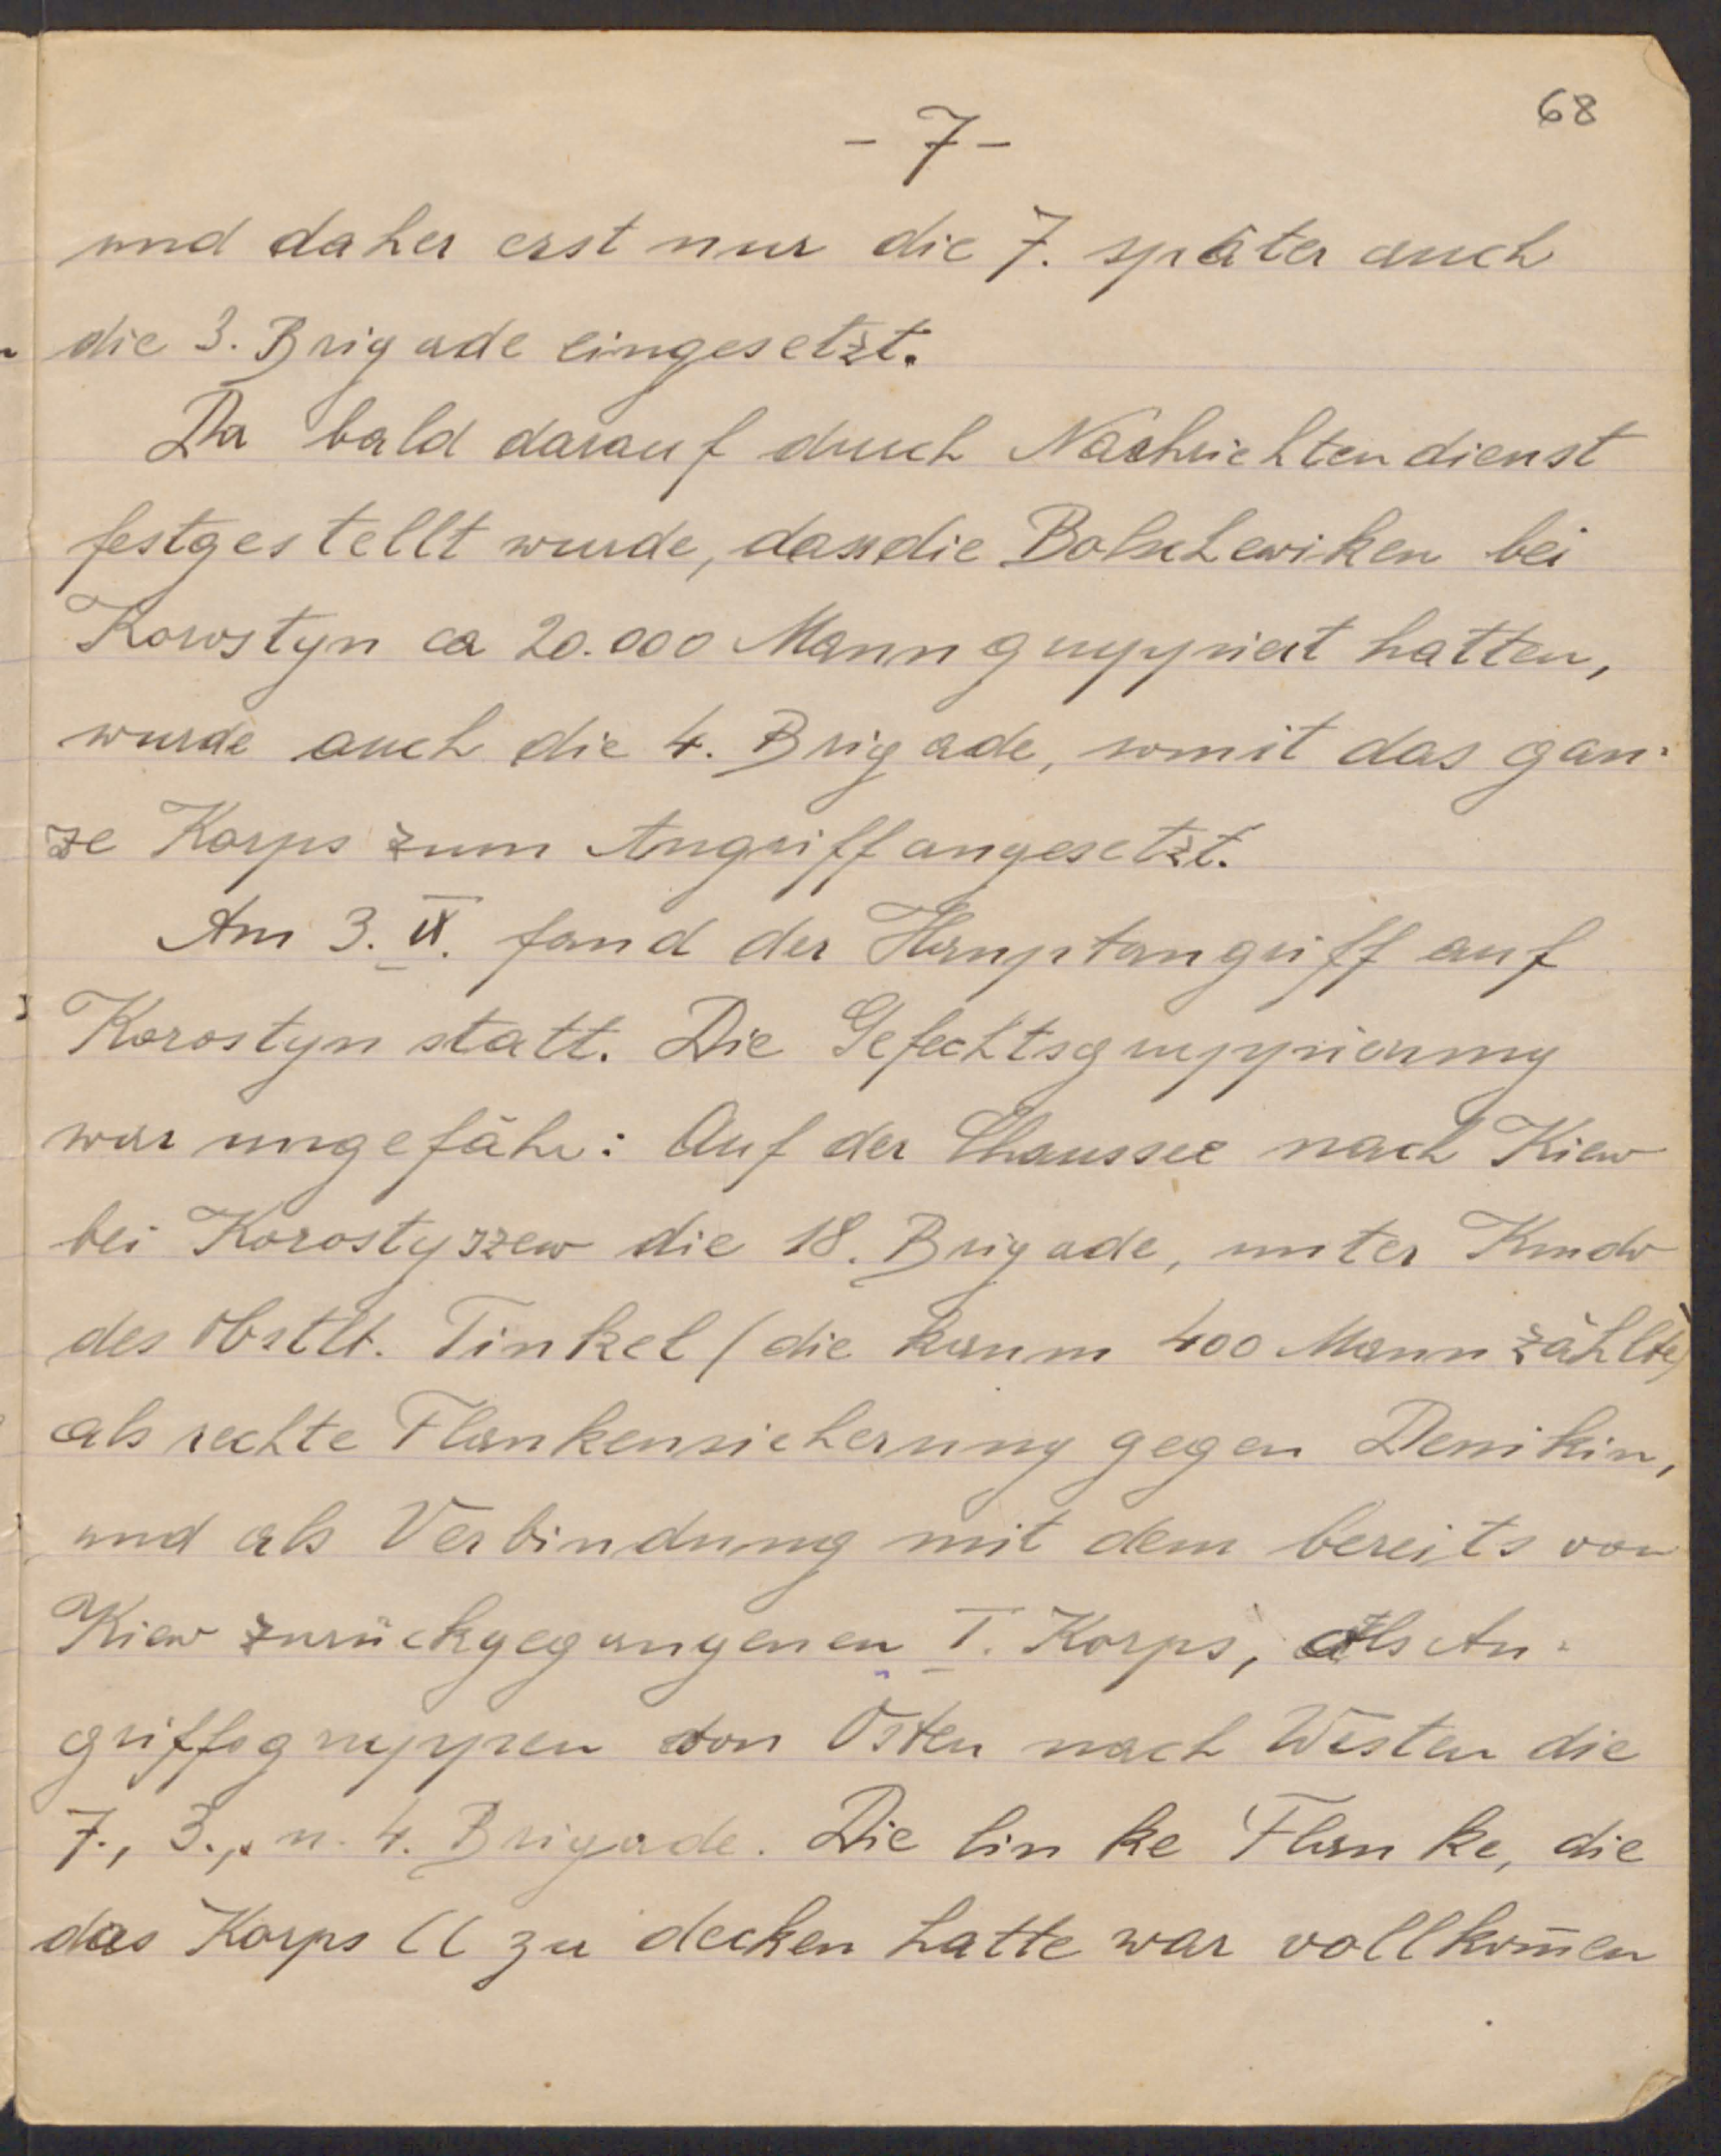 68
- 7 -
und daher erst nur die 7. später auch
die 3. Brigade eingesetzt.
Da bald darauf durch Nachrichtendienst
festgestellt wurde, dass die Bolschewiken bei
Korostyn ca 20.000 Mann gruppiert hatten,
wurde auch die 4. Brigade, somit das gan-
ze Korps zum Angriff angesetzt.
Am 3. IX. fand der Hauptangriff auf
Korostyn statt. Die Gefechtsgruppierung
war ungefähr: Auf der Chaussee nach Kiew
bei Korostyszew die 18. Brigade, unter Kmdo
des Obstlt. Tinkel (die kaum 400 Mann zählte)
als rechte Flankensicherung gegen Denikin,
und als Verbindung mit dem bereits von
Kiew zurückgegangenen I. Korps, als An-
griffsgruppen von Osten nach Westen die
7., 3., u. 4. Brigade. Die linke Flanke, die
das Korps II zu decken hatte war vollkom̅en